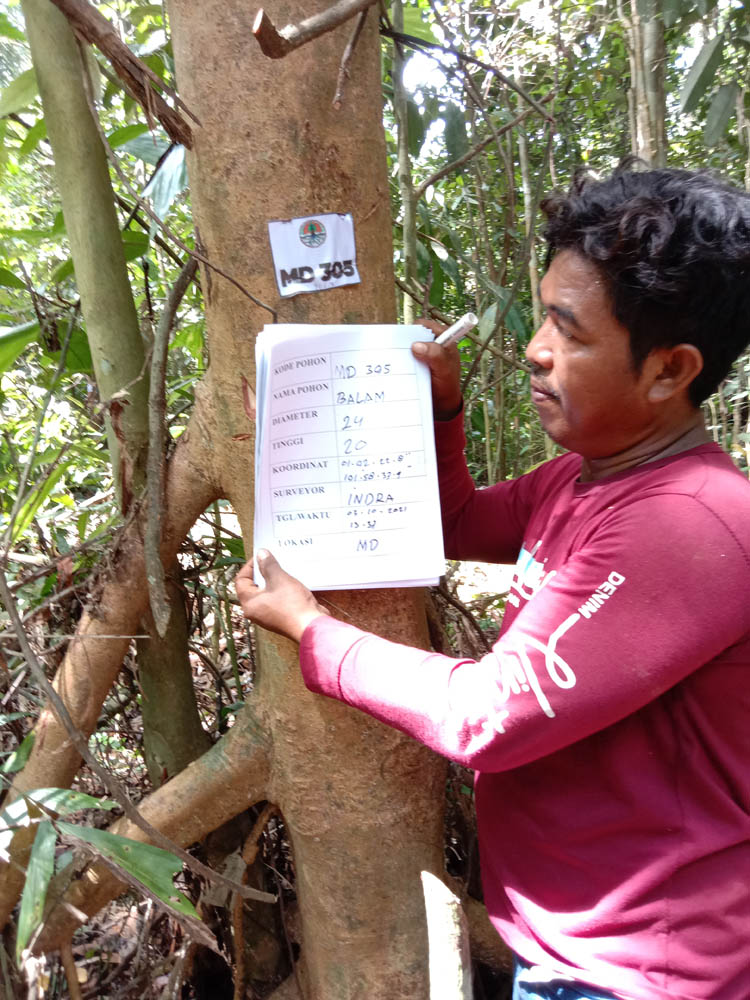 MD 305
KODE POHON MD 305
NAMA POHON BALAM
DIAMETER 24
TINGGI 20
KOORDINAT 01-02-22-8"
101-58-33-9"
SURVEYOR INDRA
TGL.WAKTU 02-10-2021
13-33
LOKASI MD
DENIM